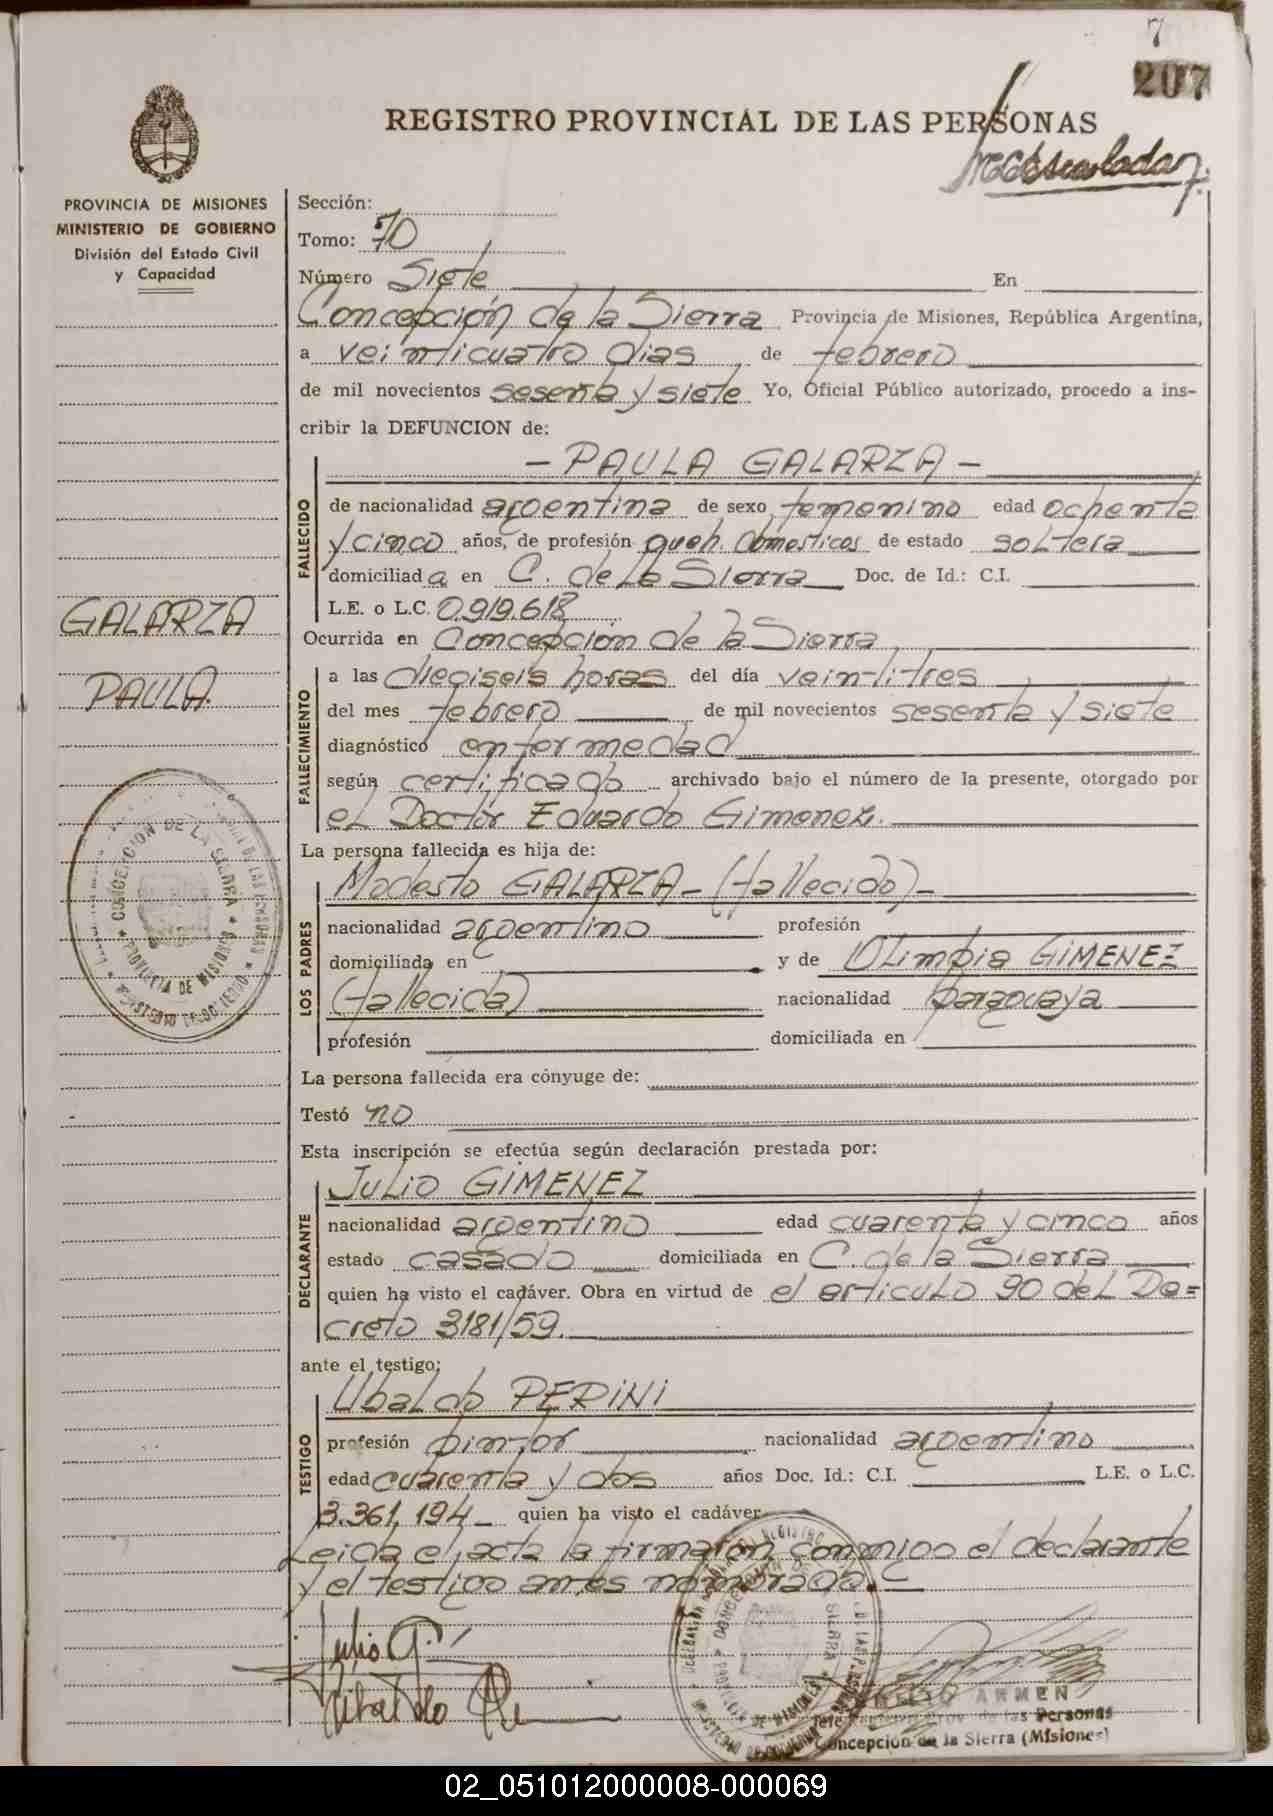 7
207
REGISTRO PROVINCIAL DE LAS PERSONAS
PROVINCIA DE MISIONES
MINISTERIO DE GOBIERNO
División del Estado Civil
y Capacidad
Sección:
Tomo: 70
Número Siete En
Concepción de la Sierra Provincia de Misiones, República Argentina,
a veinticuatro dias de febrero
de mil novecientos sesenta y siete Yo, Oficial Público autorizado, procedo a ins-
cribir la DEFUNCION de:
- PAULA GALARZA -
FALLECIDO
de nacionalidad argentina de sexo femenino edad ochenta
y cinco años, de profesión queh. domesticos de estado soltera
domiciliada en C. de la Sierra Doc. de Id.: C.I.
L.E. o L.C. 0.919.618
GALARZA
PAULA.
Ocurrida en Concepcion de la Sierra
FALLECIMIENTO
a las dieciseis horas del día veintitres
del mes febrero de mil novecientos sesenta y siete
diagnóstico enfermedad
según certificado archivado bajo el número de la presente, otorgado por
el Doctor Eduardo Gimenez.
La persona fallecida es hija de:
LOS PADRES
Modesto GALARZA - (fallecido) -
nacionalidad argentino profesión
domiciliada en y de Olimpia GIMENEZ
(fallecida) nacionalidad paraguaya
profesión domiciliada en
La persona fallecida era cónyuge de:
Testó no
Esta inscripción se efectúa según declaración prestada por:
DECLARANTE
Julio GIMENEZ
nacionalidad argentino edad cuarenta y cinco años
estado casado domiciliada en C. de la Sierra
quien ha visto el cadáver. Obra en virtud de el articulo 90 del De=
creto 3181/59.
ante el testigo:
TESTIGO
Ubaldo PERINI
profesión pintor nacionalidad argentino
edad cuarenta y dos años Doc. Id.: C.I. L.E. o L.C.
3.361.194 - quien ha visto el cadáver
Leida el acta la firmaron conmigo el declarante
y el testigo antes nombrado. -
Julio G.
CONCEPCION DE LA SIERRA
PROVINCIA DE MISIONES
MINISTERIO DE GOBIERNO
ARMEN
Prov. de las Personas
Concepcion de la Sierra (Misiones)
02_051012000008-000069